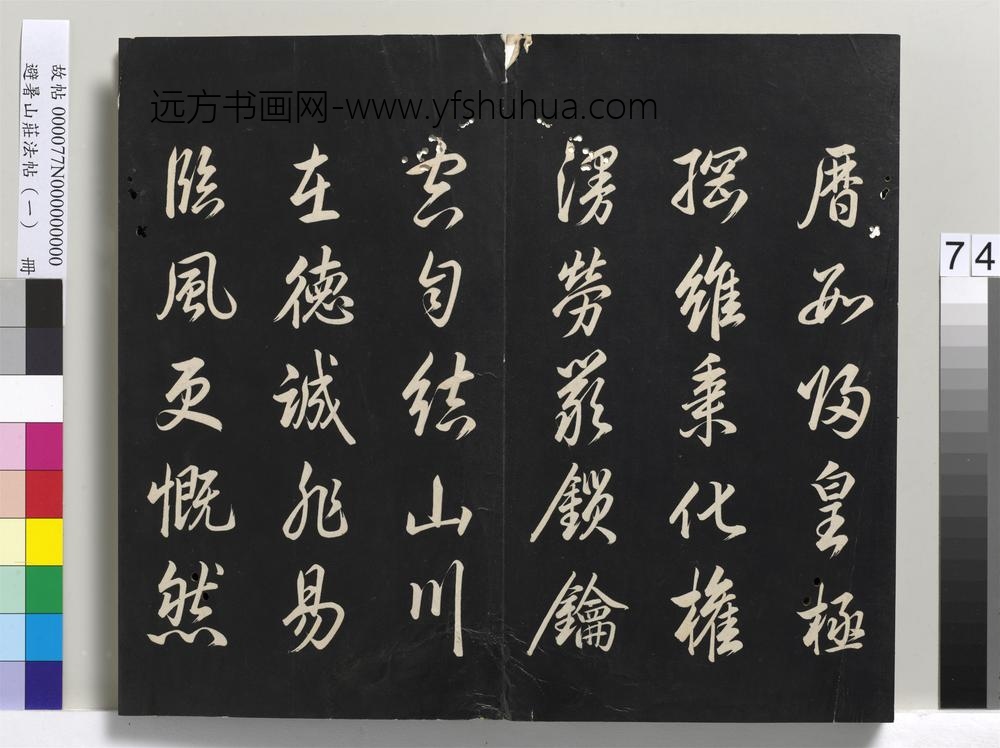 远方书画网-www.yfshuhua.com
曆數歸皇極
綱維秉化權
漫勞嚴鎖鑰
空自結山川
在德誠非易
臨風更慨然
故帖 000077N000000000
避暑山莊法帖(一) 冊
74